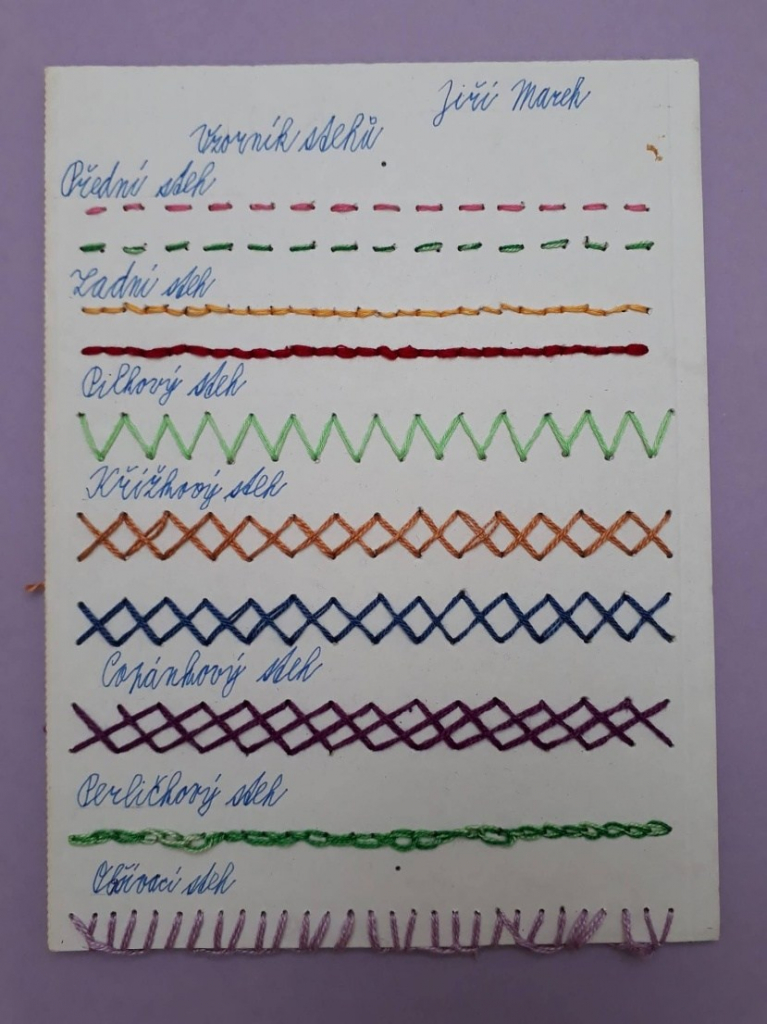 Jiří Marek
Vzorník stehů
Přední steh
Zadní steh
Pilkový steh
Křížkový steh
Copánkový steh
Perličkový steh
Obšívací steh